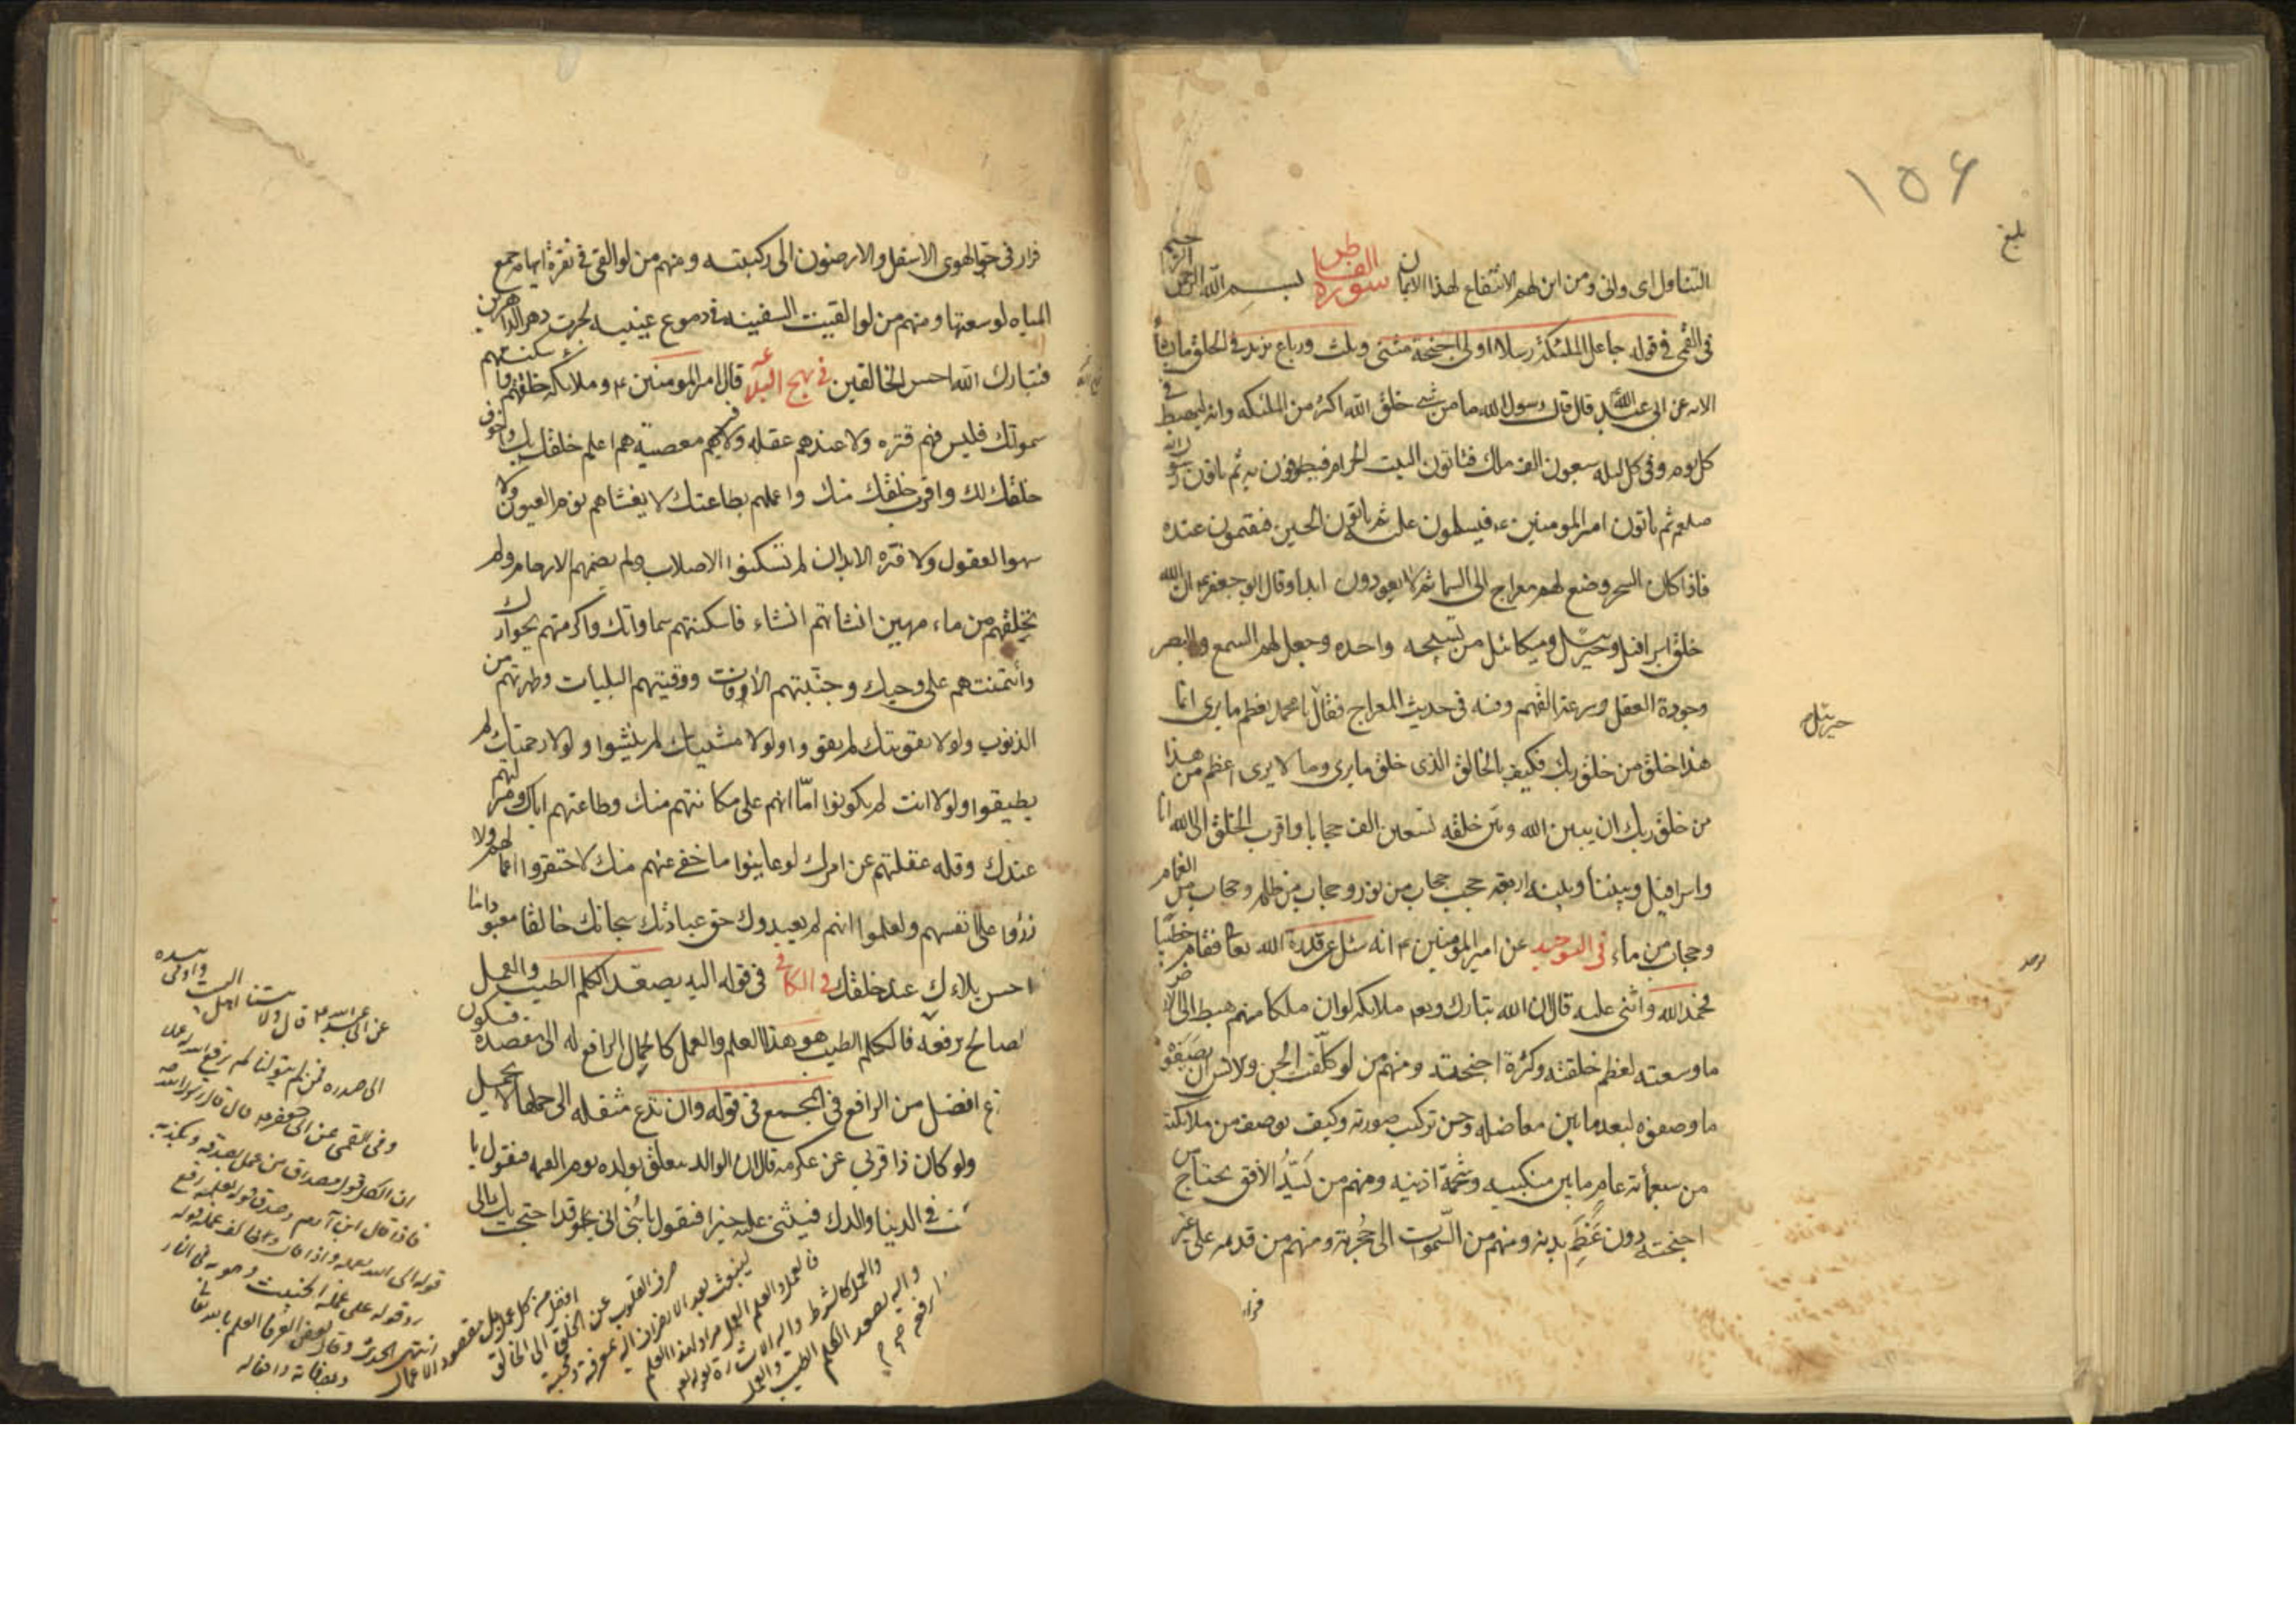 ١٥٦
بلغ
التناول اى وانى ومن اين لهم الانتفاع لهذا الايمان سورة الفاطر بسم الله الرحمن الرحيم
فى القمى فى قوله جاعل الملئكة رسلا اولى اجنحة مثنى وثلث ورباع يزيد فى الخلق ما يشاء
الايه عن ابى عبد الله قال قال رسول الله ما من شئ خلق الله اكثر من الملئكه وانه ليهبط فى
كل يوم وفى كل ليله سبعون الف ملك فياتون البيت الحرام فيطوفون به ثم ياتون رسول الله
صلعم ثم ياتون امير المومنين ع فيسلمون عليه ثم ياتون الحسين فيقيمون عنده
فاذا كان السحر وضع لهم معراج الى السما ثم لا يعودون ابدا وقال ابو جعفر ع ان الله
خلق اسرافيل وجبرئيل وميكائيل من تسبيحه واحده وجعل لهم السمع والبصر
وجودة العقل وسرعة الفهم وفيه فى حديث المعراج فقال يا محمد تعظم ما يرى انما
جبرئيل
هذا خلق من خلق ربك فكيف بالخالق الذى خلق ما يرى وما لا يرى اعظم من هذا
من خلق ربك ان بين الله وبين خلقه تسعين الف حجابا واقرب الخلق الى الله انا
واسرافيل وبيننا وبينه اربعة حجب حجاب من نور وحجاب من ظلمه وحجاب من الغمام
وحجاب من ماء فى التوحيد عن امير المؤمنين ع انه سئل عن قدرة الله تعالى فقام خطيبا
فحمد الله واثنى عليه قال ان الله تبارك وتعم ملائكه لو ان ملكا منهم هبط الى الارض
ما وسعته لعظم خلقته وكثرة اجنحته ومنهم من لو كلّفت الجن والانس ان يصفوه
ما وصفوه لبعد ما بين مفاصله وحسن تركيب صورته وكيف يوصف من ملائكته
من سبعمأته عام ما بين منكبيه وشحمة اذنيه ومنهم من يَسُدُّ الافق بجناح من
اجنحته دون عَظِم بدنه ومنهم من السّموات الى حُجزته ومنهم من قدمه على غير
قرار
قرار فى جو الهوى الاسفل والارضون الى ركبتيه ومنهم من لو القى فى نقرة ابهامه جميع
المياه لوسعتها ومنهم من لو القيت السفينه فى دموع عينيه لجرت دهر الداهرين
فتبارك الله احسن الخالقين فى نهج البلاغه قال امير المومنين ع وملائكه خلقتهم واسكنتهم
سمواتك فليس فيهم فتره ولا عندهم غفله ولا فيهم معصيّة هم اعلم خلقك بك واخوف
خلقك لك واقرب خلقك منك واعملهم بطاعتك لا يغشاهم نوم العيون ولا
سهو العقول ولا فتره الابدان لم تسكنوا الاصلاب ولم يضمهم الارحام ولم
تخلقهم من ماء مهين انشأتهم انشاء فاسكنتهم سماواتك واكرمتهم بجوارك
وأئتمنتهم على وحيك وجنّبتهم الافات ووقيتهم البليات وطهرتهم من
الذنوب ولولا تقويتك لم يقووا ولولا تثبيتك لم يثبتوا ولولا رحمتك لم
يطيقوا ولولا انت لم يكونوا امّا انهم على مكانتهم منك وطاعتهم اياك ومنزلتهم
عندك وقله غفلتهم عن امرك لو عاينوا ما خفى عنهم منك لاحتقروا اعمالهم ولا
زرؤا على انفسهم ولعلموا انهم لم يعبدوك حق عبادتك سبحانك خالقا ومعبودا ما
احسن بلاءك عند خلقك فى الكافى فى قوله اليه يصعد الكلم الطيب والعمل
الصالح يرفعه فالكلم الطيب هو هذا العلم والعمل كالحمال الرافع له الى مقصده فيكون
افضل من الرافع فى المجمع فى قوله وان تدع مثقله الى حملها لا يحمل
ولو كان ذا قربى عن عكرمه قال ان الوالد يتعلق بولده يوم القيمه فيقول يا
فى الدنيا والدك فيثنى عليه خيرا فيقول يا بُنى انى قد احتجت
عن ابى عبد الله ع قال ولايتنا اهل البيت
الى صدره فمن لم يتولنا لم يرفع الله له عملا
وفى القمى عن ابى جعفر ع قال قال رسول الله ص
ان لكل قول مصداق من عمل يصدقه او يكذبه
فاذا قال ابن آدم وصدق قوله بعمله رفع
قوله الى الله بعمله واذا قال وخالف عمله قوله
رد قوله على عمله الخبيث وهو به فى النار
انتهى الحديث وقال بعض العرفا العلم بالله تعالى
وبصفاته وافعاله
افضل من كل عمل بل مقصود الاعمال
صرف القلوب عن الخلق الى الخالق
واليه يصعد الكلم الطيب والعمل